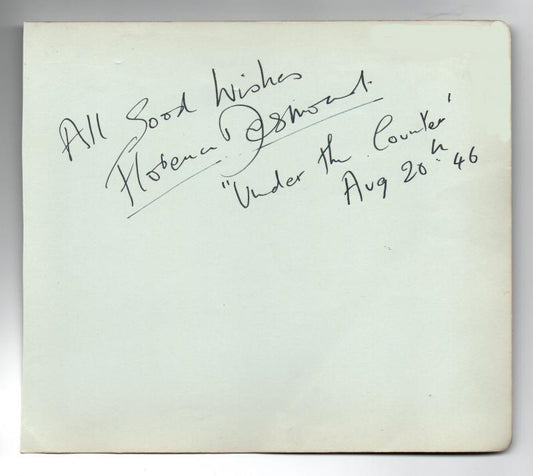 All Good Wishes
Florence Desmond.
"Under the Counter"
Aug 20th 46